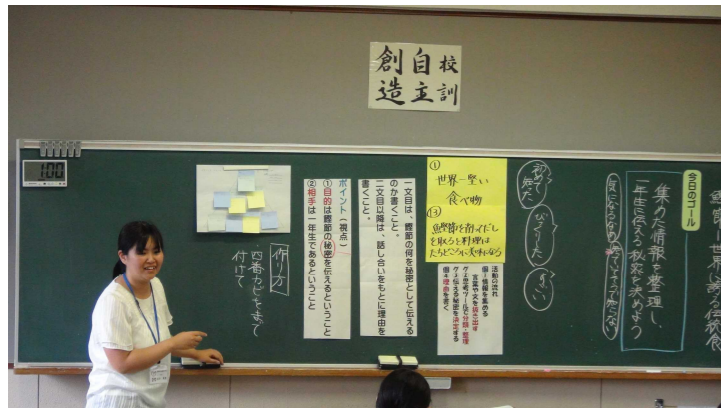 校訓
自主
創造
今日のゴール
集めた情報を整理し、
一年生に伝える秘密を決めよう
初めて
知った
びっくりした
すごい
①
世界一堅い
食べ物
⑬
鰹節を削ってだし
を取ると料理は
たちどころに美味になる
活動の流れ
個：情報を集める
言葉や文を抜き出す
グ：思考ツールで分類・整理
グ：伝える秘密を決定する
個：理由を書く
一文目は、鰹節の何を秘密として伝える
のか書くこと。
二文目以降は、話し合いをもとに理由を
書くこと。
ポイント(視点)
①目的は鰹節の秘密を伝えるということ
②相手は一年生であるということ
作り方
四番カビをまて
付けて
100